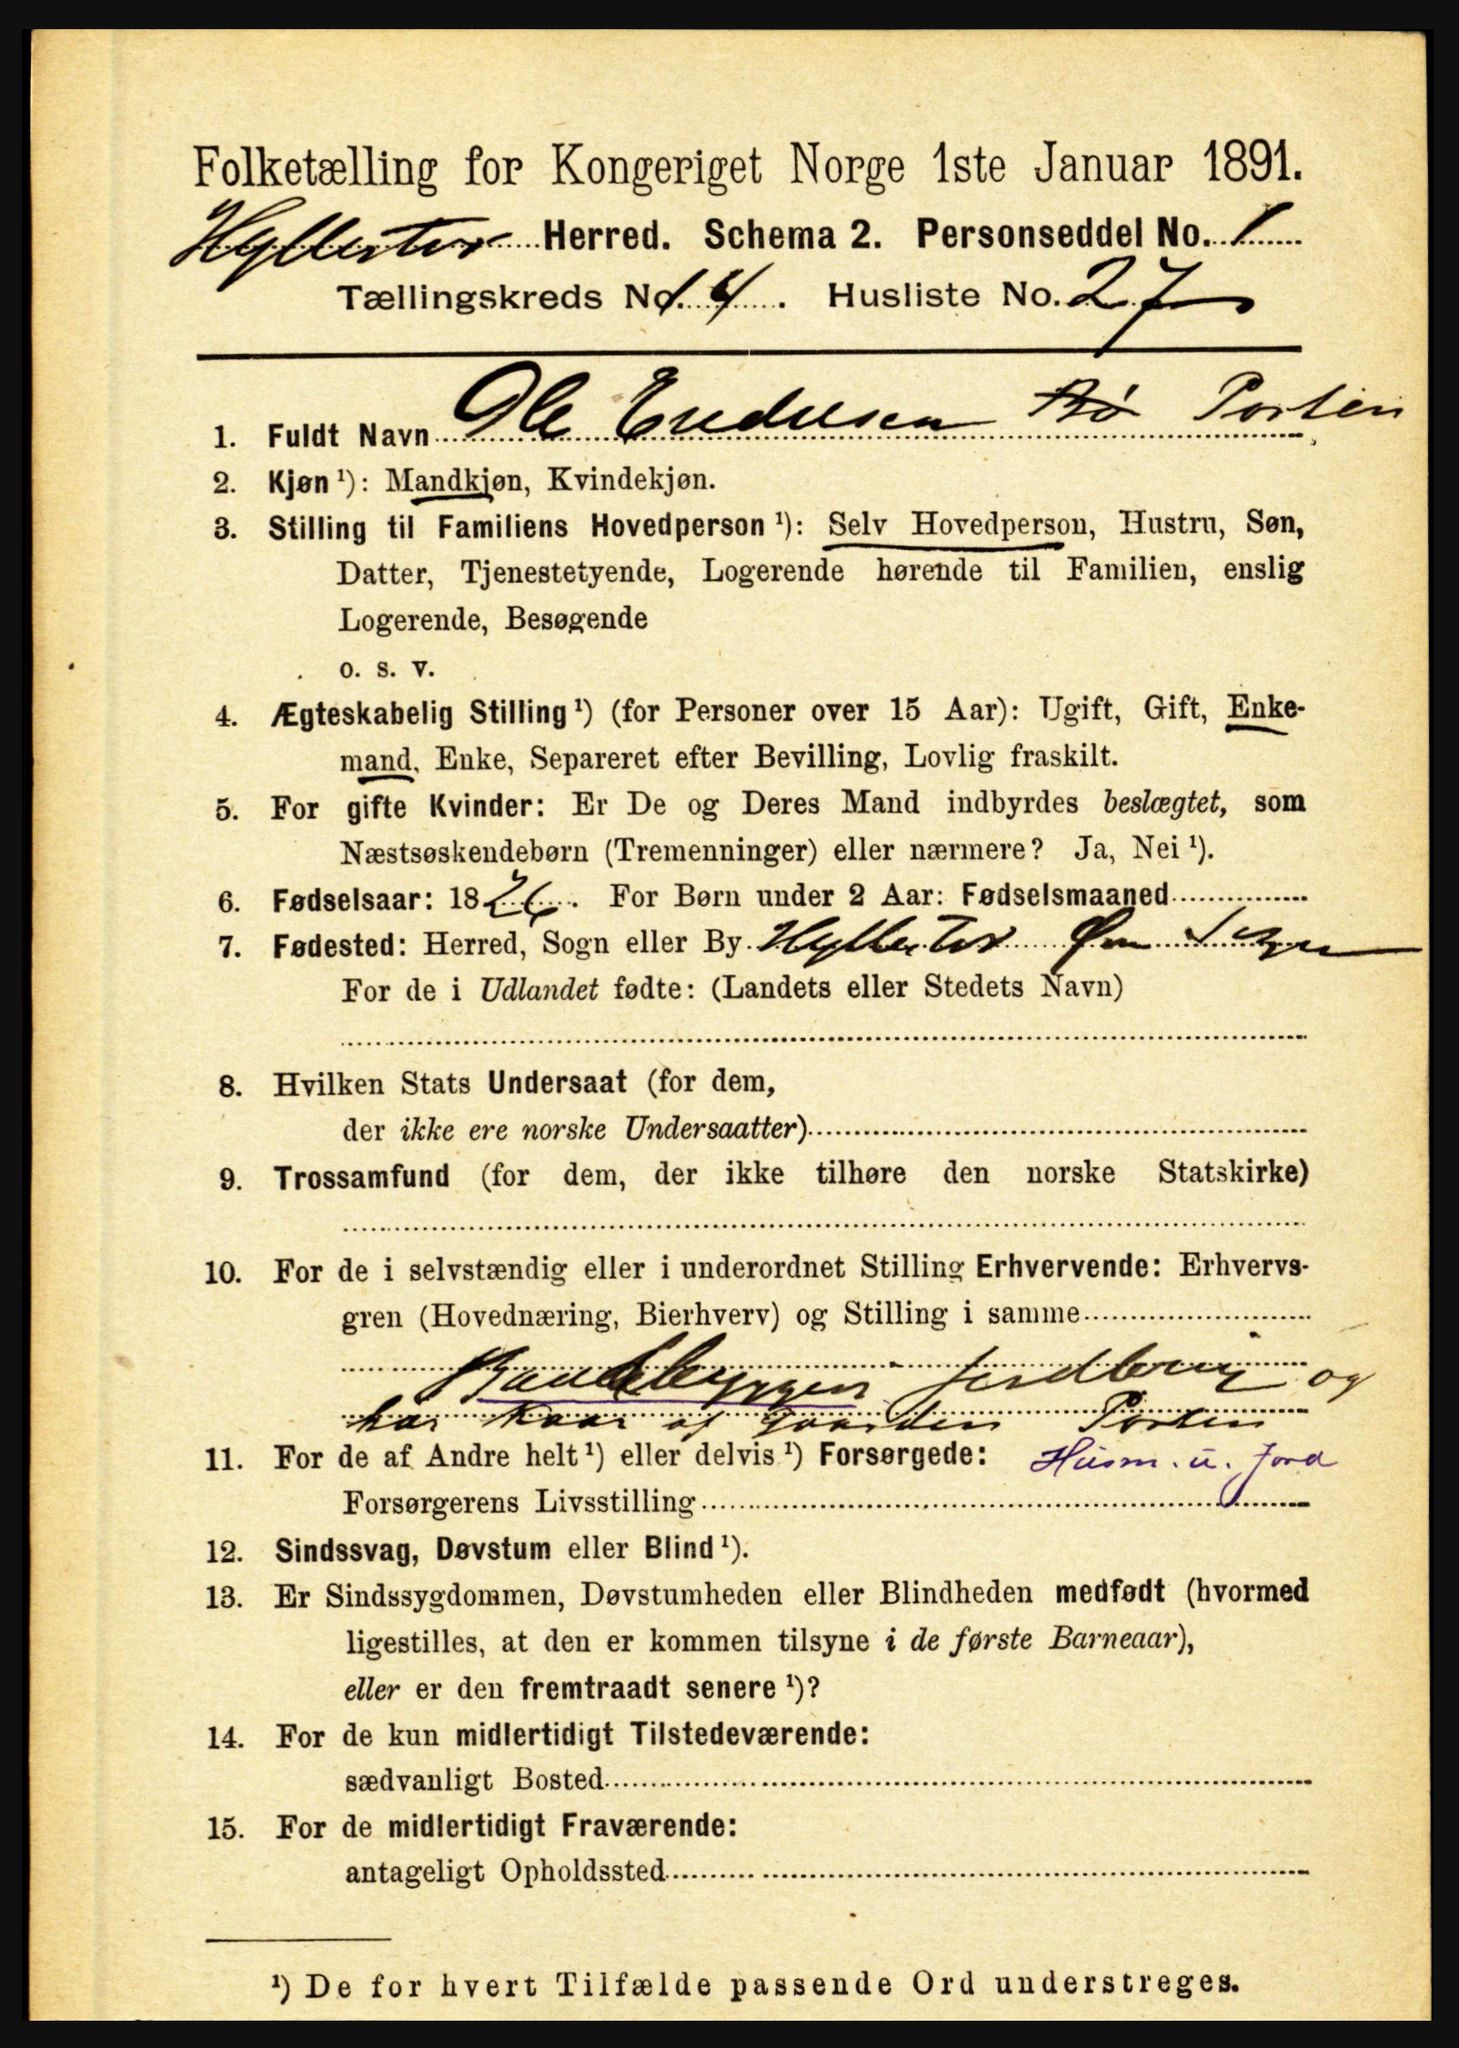 Folketælling for Kongeriget Norge 1ste Januar 1891.
Hyllestad Herred. Schema 2. Personseddel No. 1
Tællingskreds No. 4. Husliste No. 27
1. Fuldt Navn Ole Endresen Bø Porten
2. Kjøn ¹): Mandkjøn, Kvindekjøn.
3. Stilling til Familiens Hovedperson ¹): Selv Hovedperson, Hustru, Søn,
Datter, Tjenestetyende, Logerende hørende til Familien, enslig
Logerende, Besøgende
o. s. v.
4. Ægteskabelig Stilling ¹) (for Personer over 15 Aar): Ugift, Gift, Enke-
mand, Enke, Separeret efter Bevilling, Lovlig fraskilt.
5. For gifte Kvinder: Er De og Deres Mand indbyrdes beslægtet, som
Næstsøskendebørn (Tremenninger) eller nærmere? Ja, Nei ¹).
6. Fødselsaar: 1826. For Børn under 2 Aar: Fødselsmaaned
7. Fødested: Herred, Sogn eller By
For de i Udlandet fødte: (Landets eller Stedets Navn)
8. Hvilken Stats Undersaat (for dem,
der ikke ere norske Undersaatter)
9. Trossamfund (for dem, der ikke tilhøre den norske Statskirke)
10. For de i selvstændig eller i underordnet Stilling Erhvervende: Erhvervs-
gren (Hovednæring, Bierhverv) og Stilling i samme
Baadebygger jordbrug og
har Kaar af Gaarden Porten
11. For de af Andre helt ¹) eller delvis ¹) Forsørgede: Husm. u. Jord
Forsørgerens Livsstilling
12. Sindssvag, Døvstum eller Blind ¹).
13. Er Sindssygdommen, Døvstumheden eller Blindheden medfødt (hvormed
ligestilles, at den er kommen tilsyne i de første Barneaar),
eller er den fremtraadt senere ¹)?
14. For de kun midlertidigt Tilstedeværende:
sædvanligt Bosted
15. For de midlertidigt Fraværende:
antageligt Opholdssted
¹) De for hvert Tilfælde passende Ord understreges.